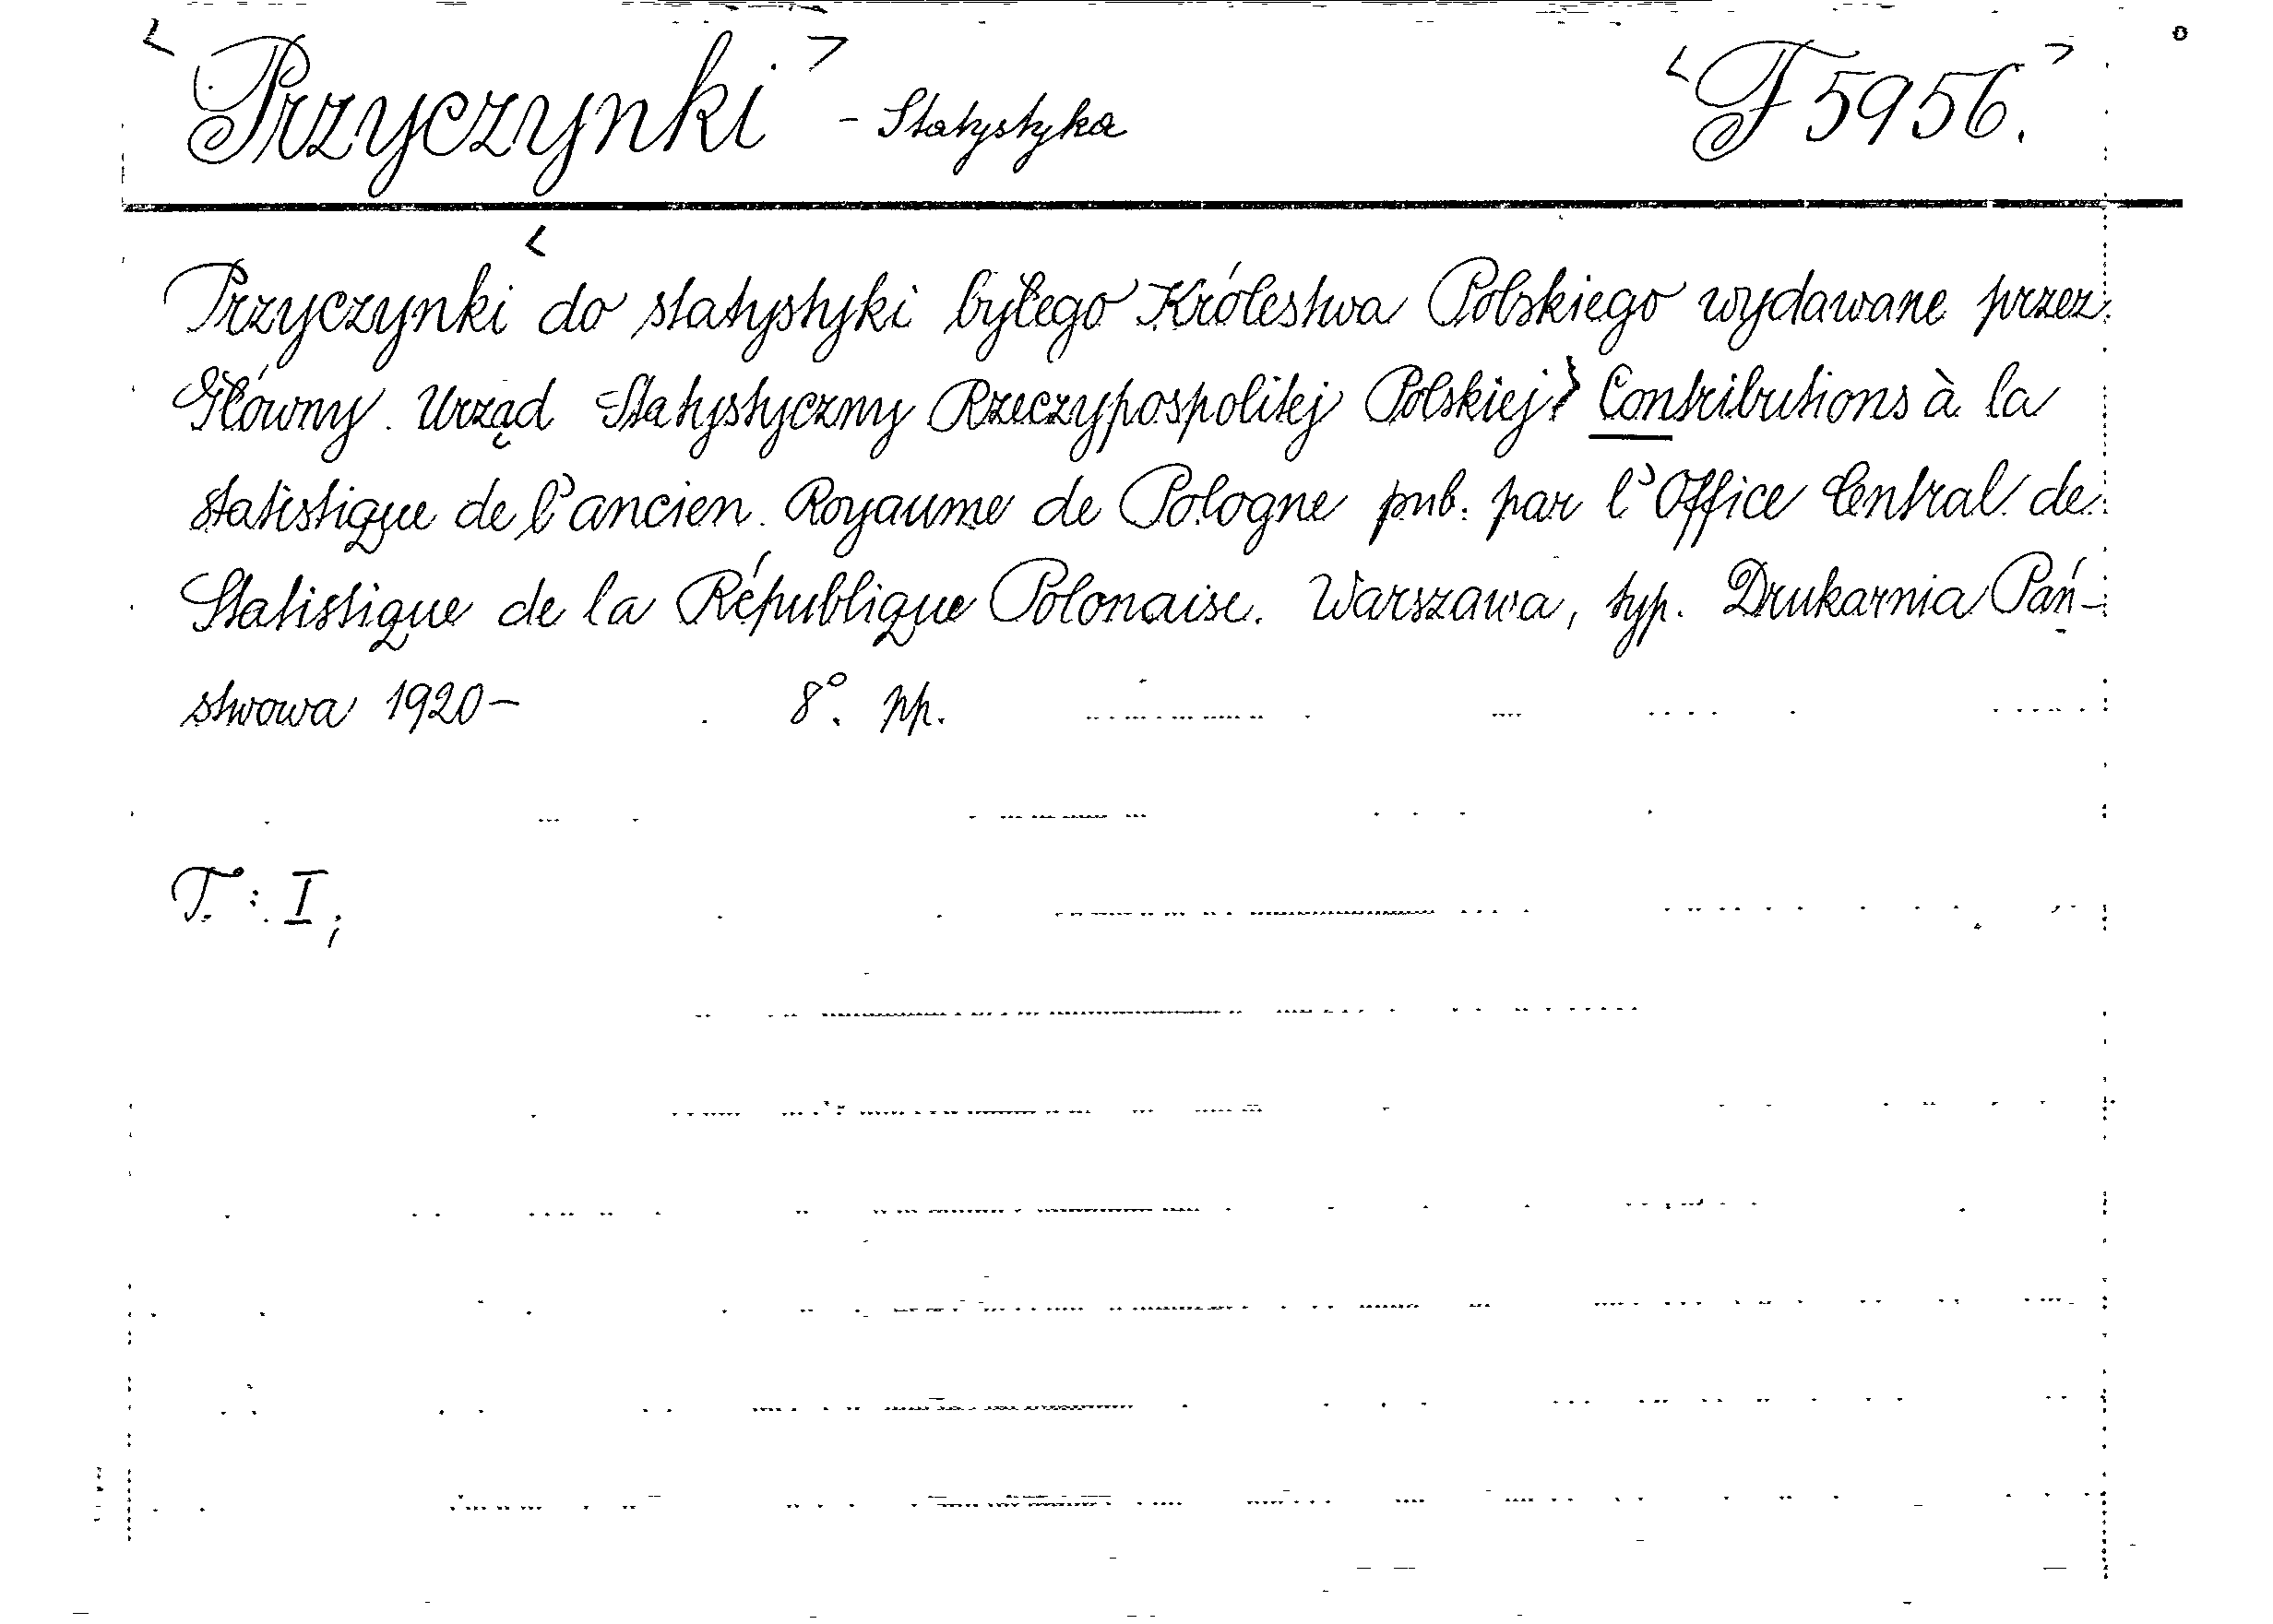 <Przyczynki> - Statystyka <F 5956.>
<
Przyczynki do statystyki byłego Królestwa Polskiego wydawane przez
Główny Urząd Statystyczny Rzeczypospolitej Polskiej> Contributions à la
statistique de l'ancien Royaume de Pologne pub. par l'Office Central de
Statistique de la République Polonaise. Warszawa, typ. Drukarnia Pań-
stwowa 1920- 8°. pp.
T. : I,